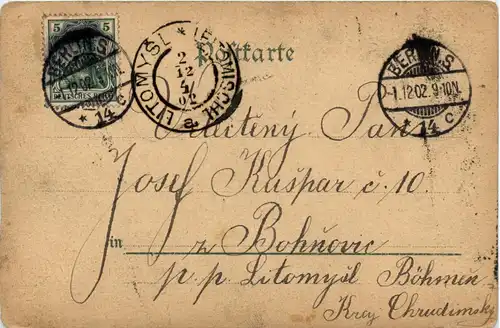 5 5
BERLIN S.
DEUTSCHES REICH
* 14 c
LITOMYŠL * LEITOMISCHL a
2
12
02
Postkarte
BERLIN.S.
-1.12.02.9-10N.
* 14 c
Velectěný Pan
Josef Kašpar č. 10.
in z Bohňovic
p. p. Litomyšl Böhmen
Kraj Chrudimský